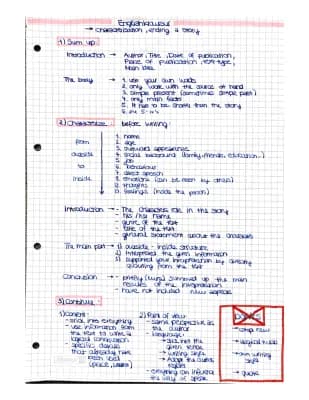 → characterization, ending a story
1) Sum up:
Introduction → Author, Title, Date of publication,
Place of publication, text type,
Main idea
The body → 1. use your own words
2. only work with the source at hand
3. simple present (sometimes simple past)
4. only main facts
5. it has to be shorter than the story
2) Characterize: before writing:
1. name
from 2. age
3. outward appearance
outside 4. social background (family, friends, education...)
5. job
to 6. behaviour
7. direct speech
inside 8. emotions (can be seen by others)
9. thoughts
10. feelings (inside the person)
Introduction → - The characters role in the story
- his / her name
- genre of the text
- title of the text
- general statement about the character
The main part → 1) outside - inside structure
2) Interpreted the given information
3) supported your interpretation by directly
quoting from the text
Conclusion → - briefly (very) summed up the main
results of the interpretation
- have not included new aspects
3) Continue:
1) Content: 2) Point of view
- same perspective as
- use information from the author
the text to write a - language:
logical continuation → use not the
- specific details given tense
that already have → writing style
been used → Adopt the
- everything can influence
the way of speak
→ writing style
→ quote